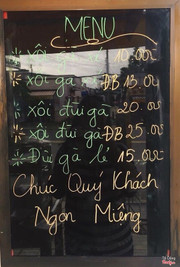 MENU
xôi gà lẻ 10.000
xôi gà ĐB 15.000
xôi đùi gà 20.000
xôi đùi gà ĐB 25.000
Đùi gà lẻ 15.000
Chúc Quý Khách
Ngon Miệng